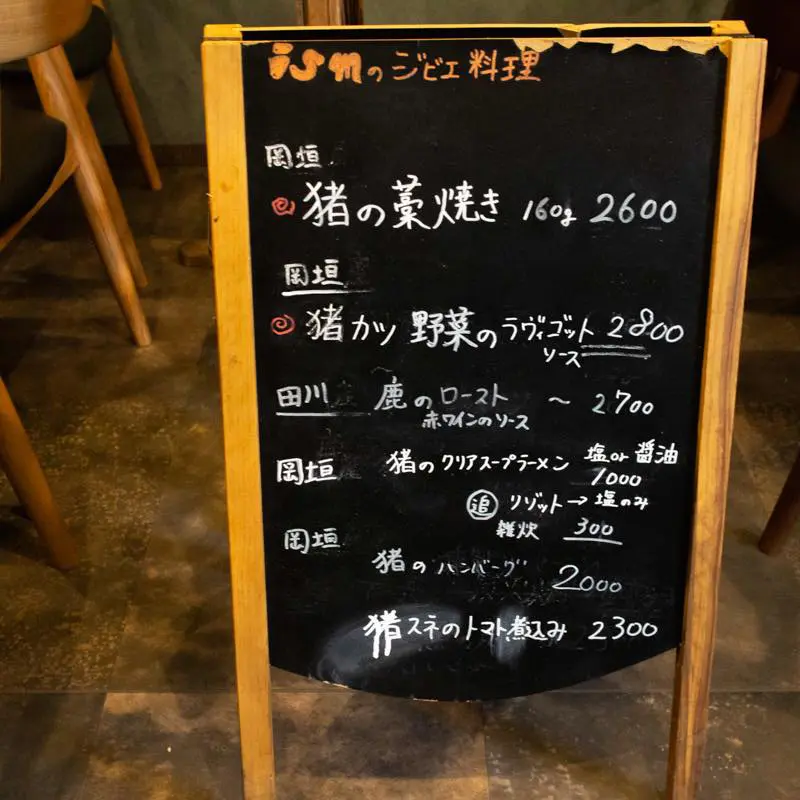 ismのジビエ料理
岡垣
猪の藁焼き 160g 2600
岡垣
猪カツ 野菜のラヴィゴット 2800
ソース
田川 鹿のロースト 〜 2700
赤ワインのソース
岡垣 猪のクリアスープラーメン 塩or醤油
1000
追 リゾット→塩のみ
雑炊 300
岡垣
猪の"ハンバーグ" 2000
猪スネのトマト煮込み 2300